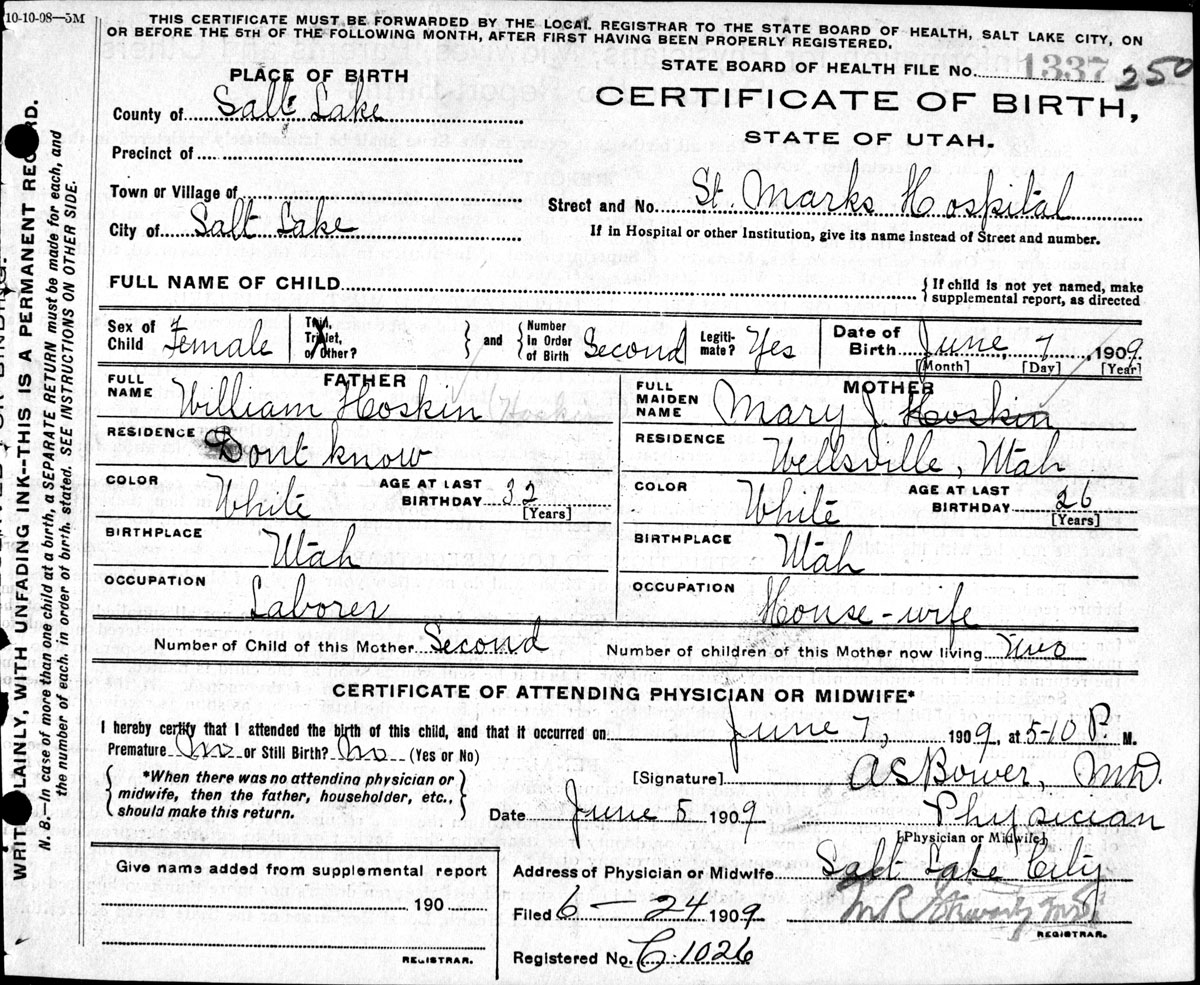 10-10-08—5M
THIS CERTIFICATE MUST BE FORWARDED BY THE LOCAL REGISTRAR TO THE STATE BOARD OF HEALTH, SALT LAKE CITY, ON
OR BEFORE THE 5TH OF THE FOLLOWING MONTH, AFTER FIRST HAVING BEEN PROPERLY REGISTERED.
STATE BOARD OF HEALTH FILE No. 1337 250
PLACE OF BIRTH
CERTIFICATE OF BIRTH,
STATE OF UTAH.
County of Salt Lake
Precinct of
Town or Village of
City of Salt Lake
Street and No. St. Marks Hospital
If in Hospital or other Institution, give its name instead of Street and number.
FULL NAME OF CHILD
If child is not yet named, make
supplemental report, as directed
Sex of Child Female
Twin, Triplet, or Other?
and Number In Order of Birth Second
Legitimate? Yes
Date of Birth June 7 1909
[Month] [Day] [Year]
FATHER
FULL NAME William Hoskin (Hoskin
RESIDENCE Dont know
COLOR White AGE AT LAST BIRTHDAY 32
[Years]
BIRTHPLACE Utah
OCCUPATION Laborer
MOTHER
FULL MAIDEN NAME Mary J. Hoskin
RESIDENCE Wellsville, Utah
COLOR White AGE AT LAST BIRTHDAY 26
[Years]
BIRTHPLACE Utah
OCCUPATION House-wife
Number of Child of this Mother Second Number of children of this Mother now living Two
CERTIFICATE OF ATTENDING PHYSICIAN OR MIDWIFE*
I hereby certify that I attended the birth of this child, and that it occurred on June 7, 1909, at 5-10 P. M.
Premature No or Still Birth? No (Yes or No)
*When there was no attending physician or
midwife, then the father, householder, etc.,
should make this return.
[Signature] A S Bower, MD.
Date June 5 1909 Physician
[Physician or Midwife]
Address of Physician or Midwife Salt Lake City
Filed 6—24 1909
REGISTRAR.
Registered No. C-1026
Give name added from supplemental report
190
REGISTRAR.
WRITE PLAINLY, WITH UNFADING INK--THIS IS A PERMANENT RECORD.
N. B.—In case of more than one child at a birth, a SEPARATE RETURN must be made for each, and
the number of each, in order of birth, stated. SEE INSTRUCTIONS ON OTHER SIDE.